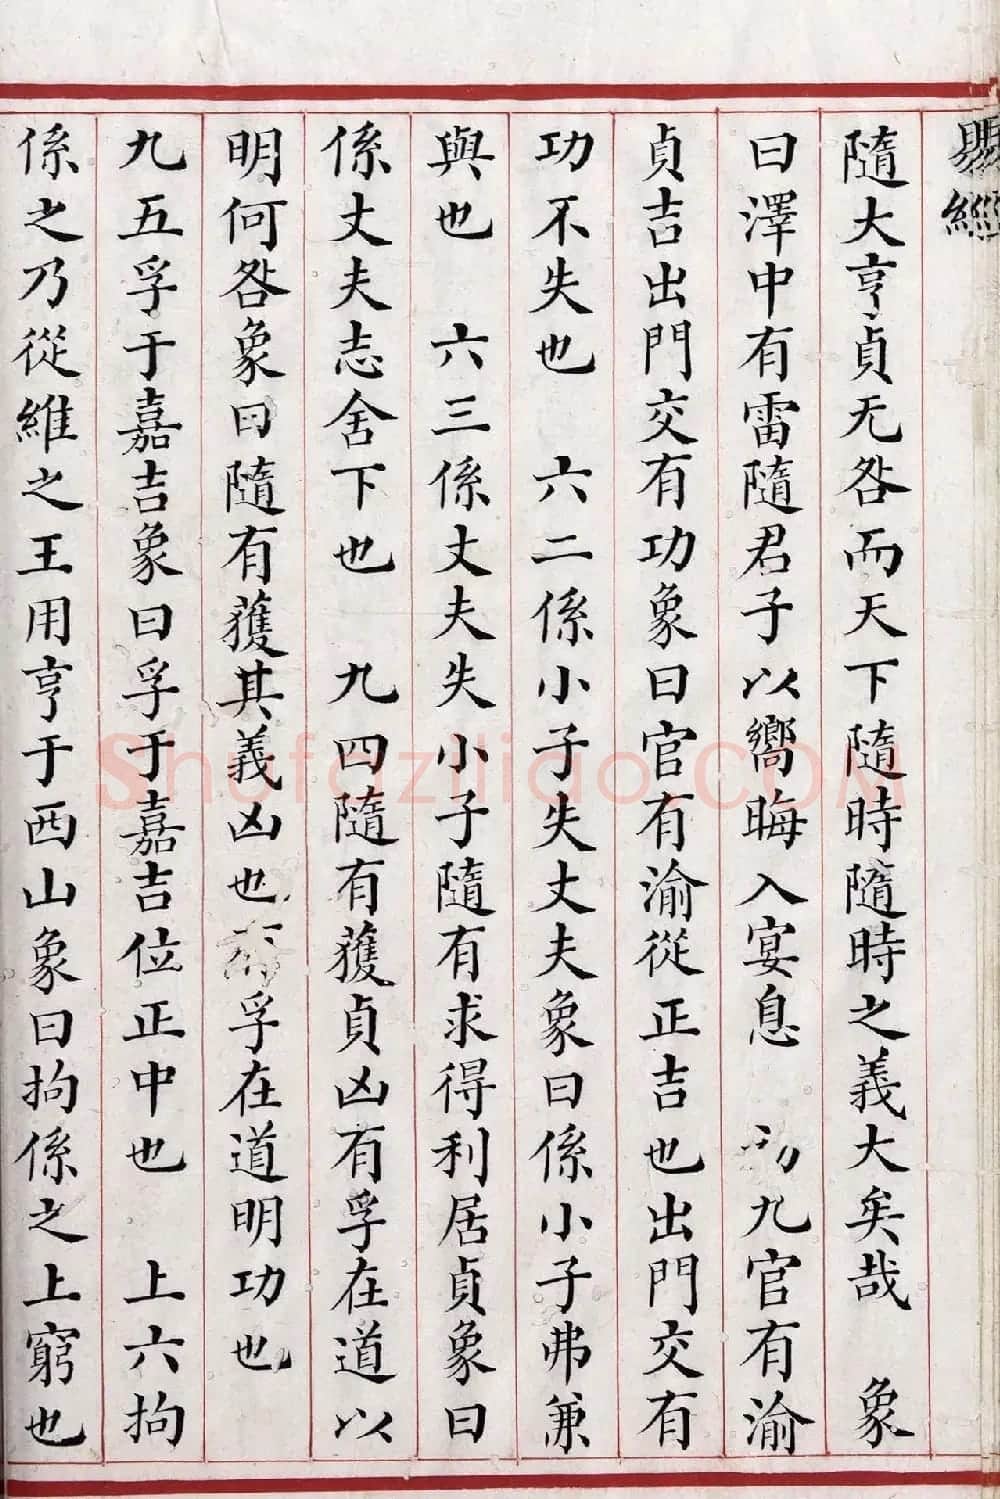 易經
隨大亨貞无咎而天下隨時隨時之義大矣哉 象
曰澤中有雷隨君子以嚮晦入宴息 初九官有渝
貞吉出門交有功象曰官有渝從正吉也出門交有
功不失也 六二係小子失丈夫象曰係小子弗兼
與也 六三係丈夫失小子隨有求得利居貞象曰
係丈夫志舍下也 九四隨有獲貞凶有孚在道以
明何咎象曰隨有獲其義凶也有孚在道明功也
九五孚于嘉吉象曰孚于嘉吉位正中也 上六拘
係之乃從維之王用亨于西山象曰拘係之上窮也
Shufaziliao.COM